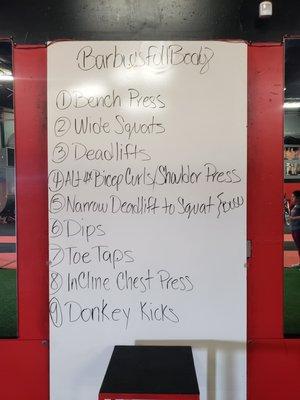 {Barbwisfull Body}
① Bench Press
② Wide Squats
③ Deadlifts
④ Alt 4x Bicep Curls/Shoulder Press
⑤ Narrow Deadlift to Squat
⑥ Dips
⑦ Toe Taps
⑧ Incline Chest Press
⑨ Donkey Kicks